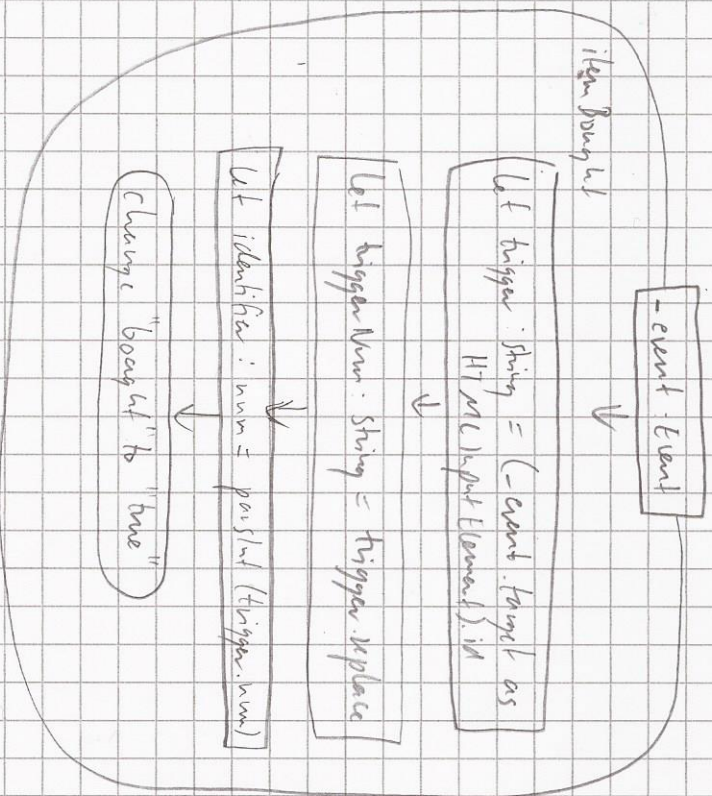 itemBought
_event: Event
let trigger: string = (_event.target as
HTMLInputElement).id
let triggerNum: string = trigger.replace
let identifier: num = parsInt (trigger.num)
change "bought" to "true"